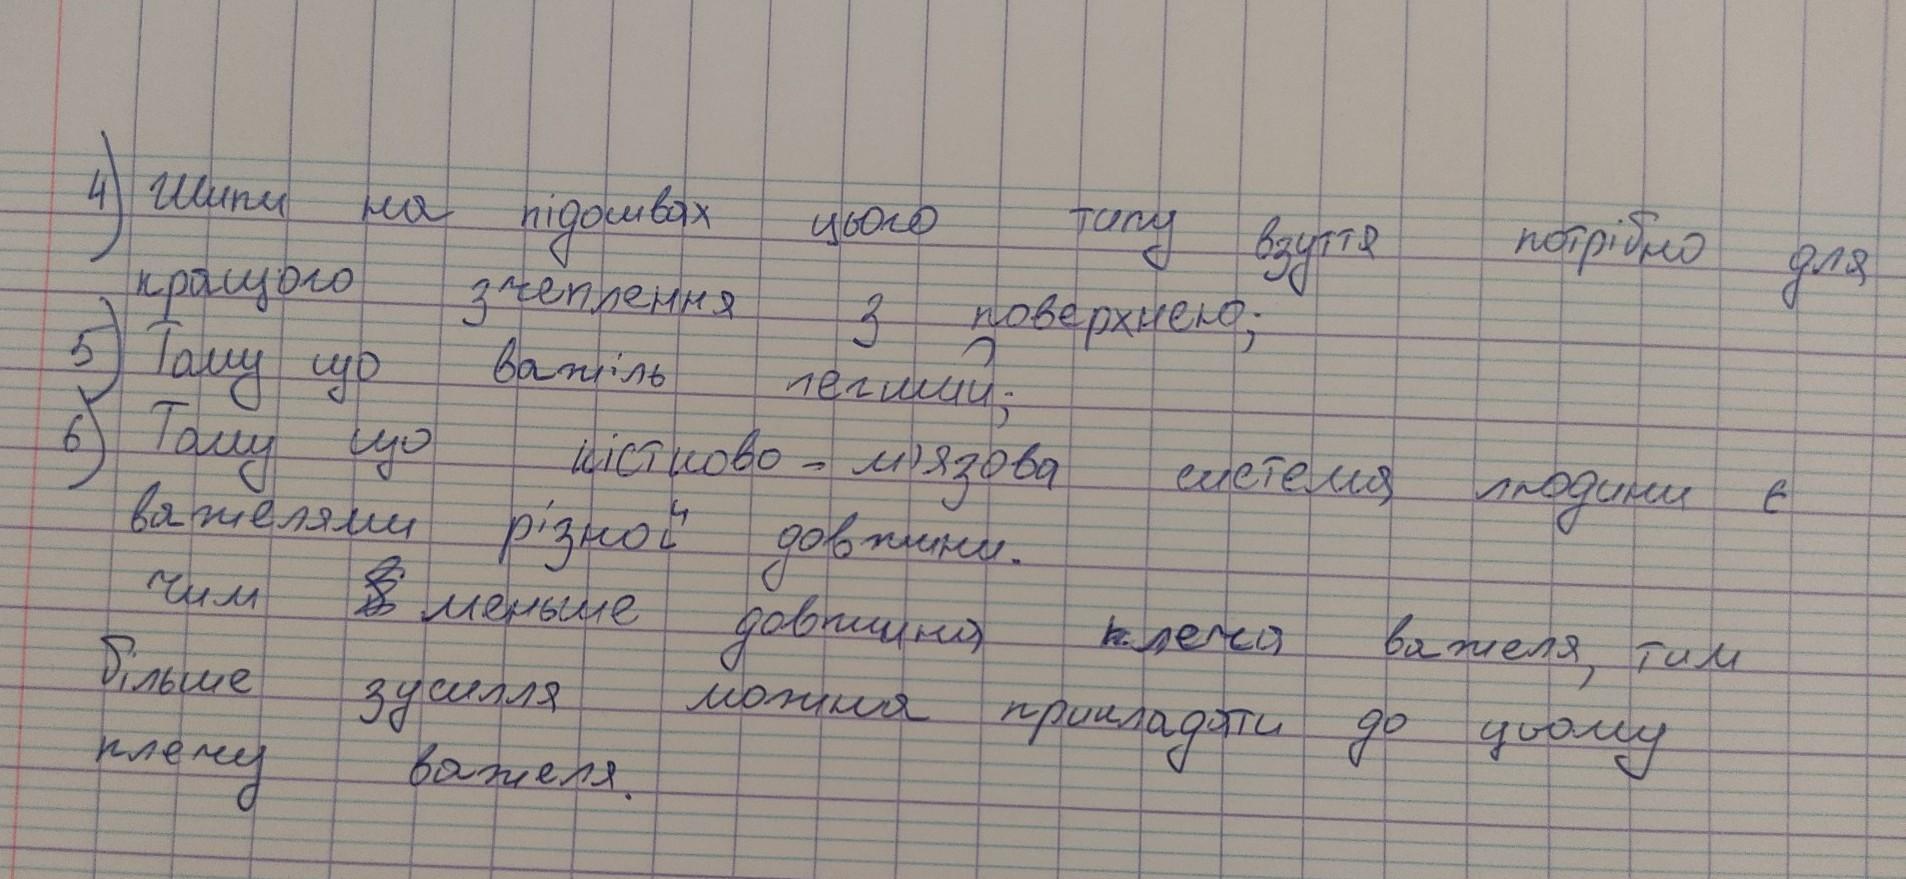 4) Шипи на підошвах цього типу взуття потрібно для
кращого зчеплення з поверхнею;
5) Тому що важіль легший;
6) Тому що кістково-м'язова система людини є
важелями різної довжини.
Чим меньше довжина плеча важеля, тим
більше зусилля можна прикладати до цьому
плечу важеля.